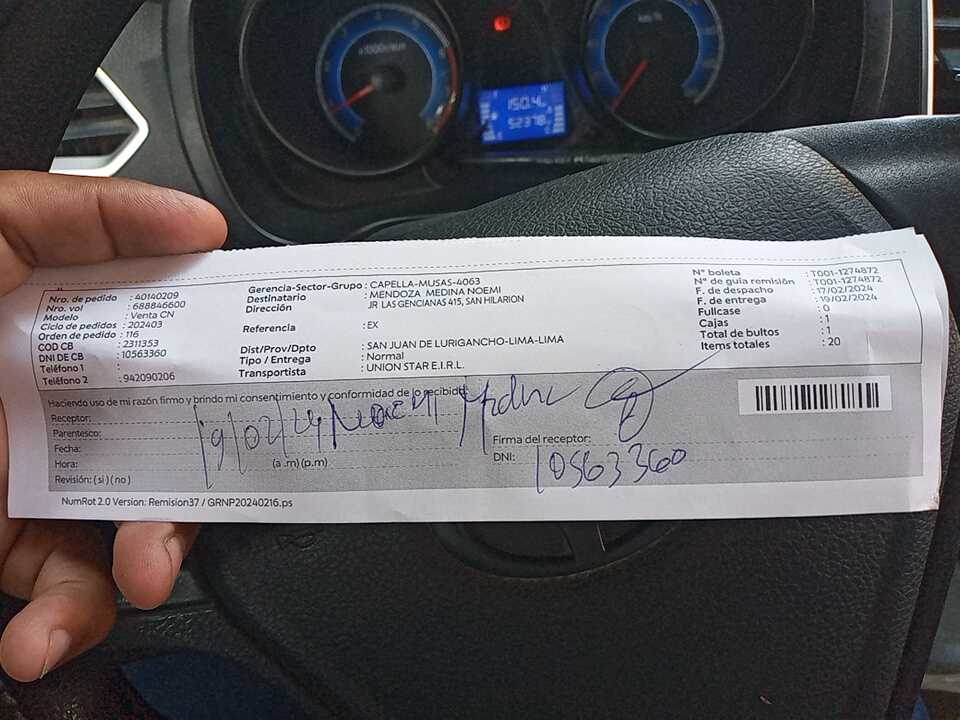 x1000r/min
km/h
150.4
52378
Nro. de pedido : 40140209
Nro. vol : 688846600
Modelo : Venta CN
Ciclo de pedidos : 202403
Orden de pedido : 116
COD CB : 2311353
DNI DE CB : 10563360
Teléfono 1 :
Teléfono 2 : 942090206
Gerencia-Sector-Grupo : CAPELLA-MUSAS-4063
Destinatario : MENDOZA MEDINA NOEMI
Dirección JR LAS GENCIANAS 415, SAN HILARION
Referencia : EX
Dist/Prov/Dpto : SAN JUAN DE LURIGANCHO-LIMA-LIMA
Tipo / Entrega : Normal
Transportista : UNION STAR E.I.R.L.
N° boleta : T001-1274872
N° de guía remisión : T001-1274872
F. de despacho : 17/02/2024
F. de entrega : 19/02/2024
Fullcase : 0
Cajas : 1
Total de bultos : 1
Items totales : 20
Haciendo uso de mi razón firmo y brindo mi consentimiento y conformidad de lo recibido:
Receptor:
Parentesco:
Fecha:
19/02/24 Noemi
Hora: (a .m) (p.m)
Revisión: ( si ) ( no )
Firma del receptor:
DNI: 10563360
NumRot 2.0 Version: Remision37 / GRNP20240216.ps